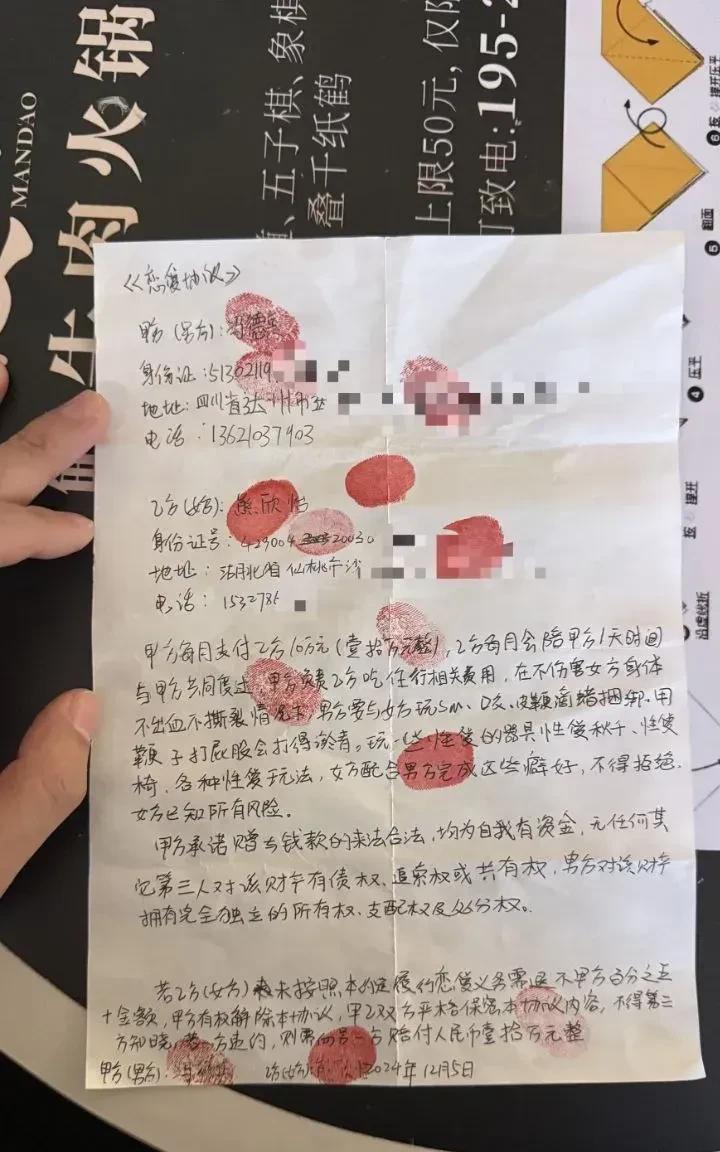 MANDAO
牛肉火锅
五子棋、象棋
叠千纸鹤
上限50元,仅限
丁致电:195-2
压平
翻面
沿虚线折
《恋爱协议》
甲方(男方):
身份证:51302119
地址:四川省达州市
电话:13621037903
乙方(女方):熊欣怡
身份证号:429004 20030
地址:湖北省仙桃市沙
电话:1532786
甲方每月支付乙方10万元(壹拾万元整),乙方每月会陪甲方1天时间
与甲方共同度过,甲方负责乙方吃住行相关费用,在不伤害女方身体
不出血不撕裂情况下,男方要与女方玩Sm、口交、皮鞭滴蜡捆绑、用
鞭子打屁股会打得淤青。玩一些性爱的器具性爱秋千、性爱
椅、各种性爱玩法,女方配合男方完成这些癖好,不得拒绝.
女方已知所有风险。
甲方承诺赠与钱款的来法合法,均为自我有资金,无任何其
它第三人对该财产有债权、追索权或共有权,男方对该财产
拥有完全独立的所有权、支配权及处分权。
若乙方(女方)未按照本约定履行恋爱义务需退还甲方百分之五
十金额,甲方有权解除本协议,甲乙双方严格保密本协议内容,不得第三
方知晓,若一方违约,则需向另一方赔付人民币壹拾万元整
甲方(男方): 乙方(女方): 2024年12月5日